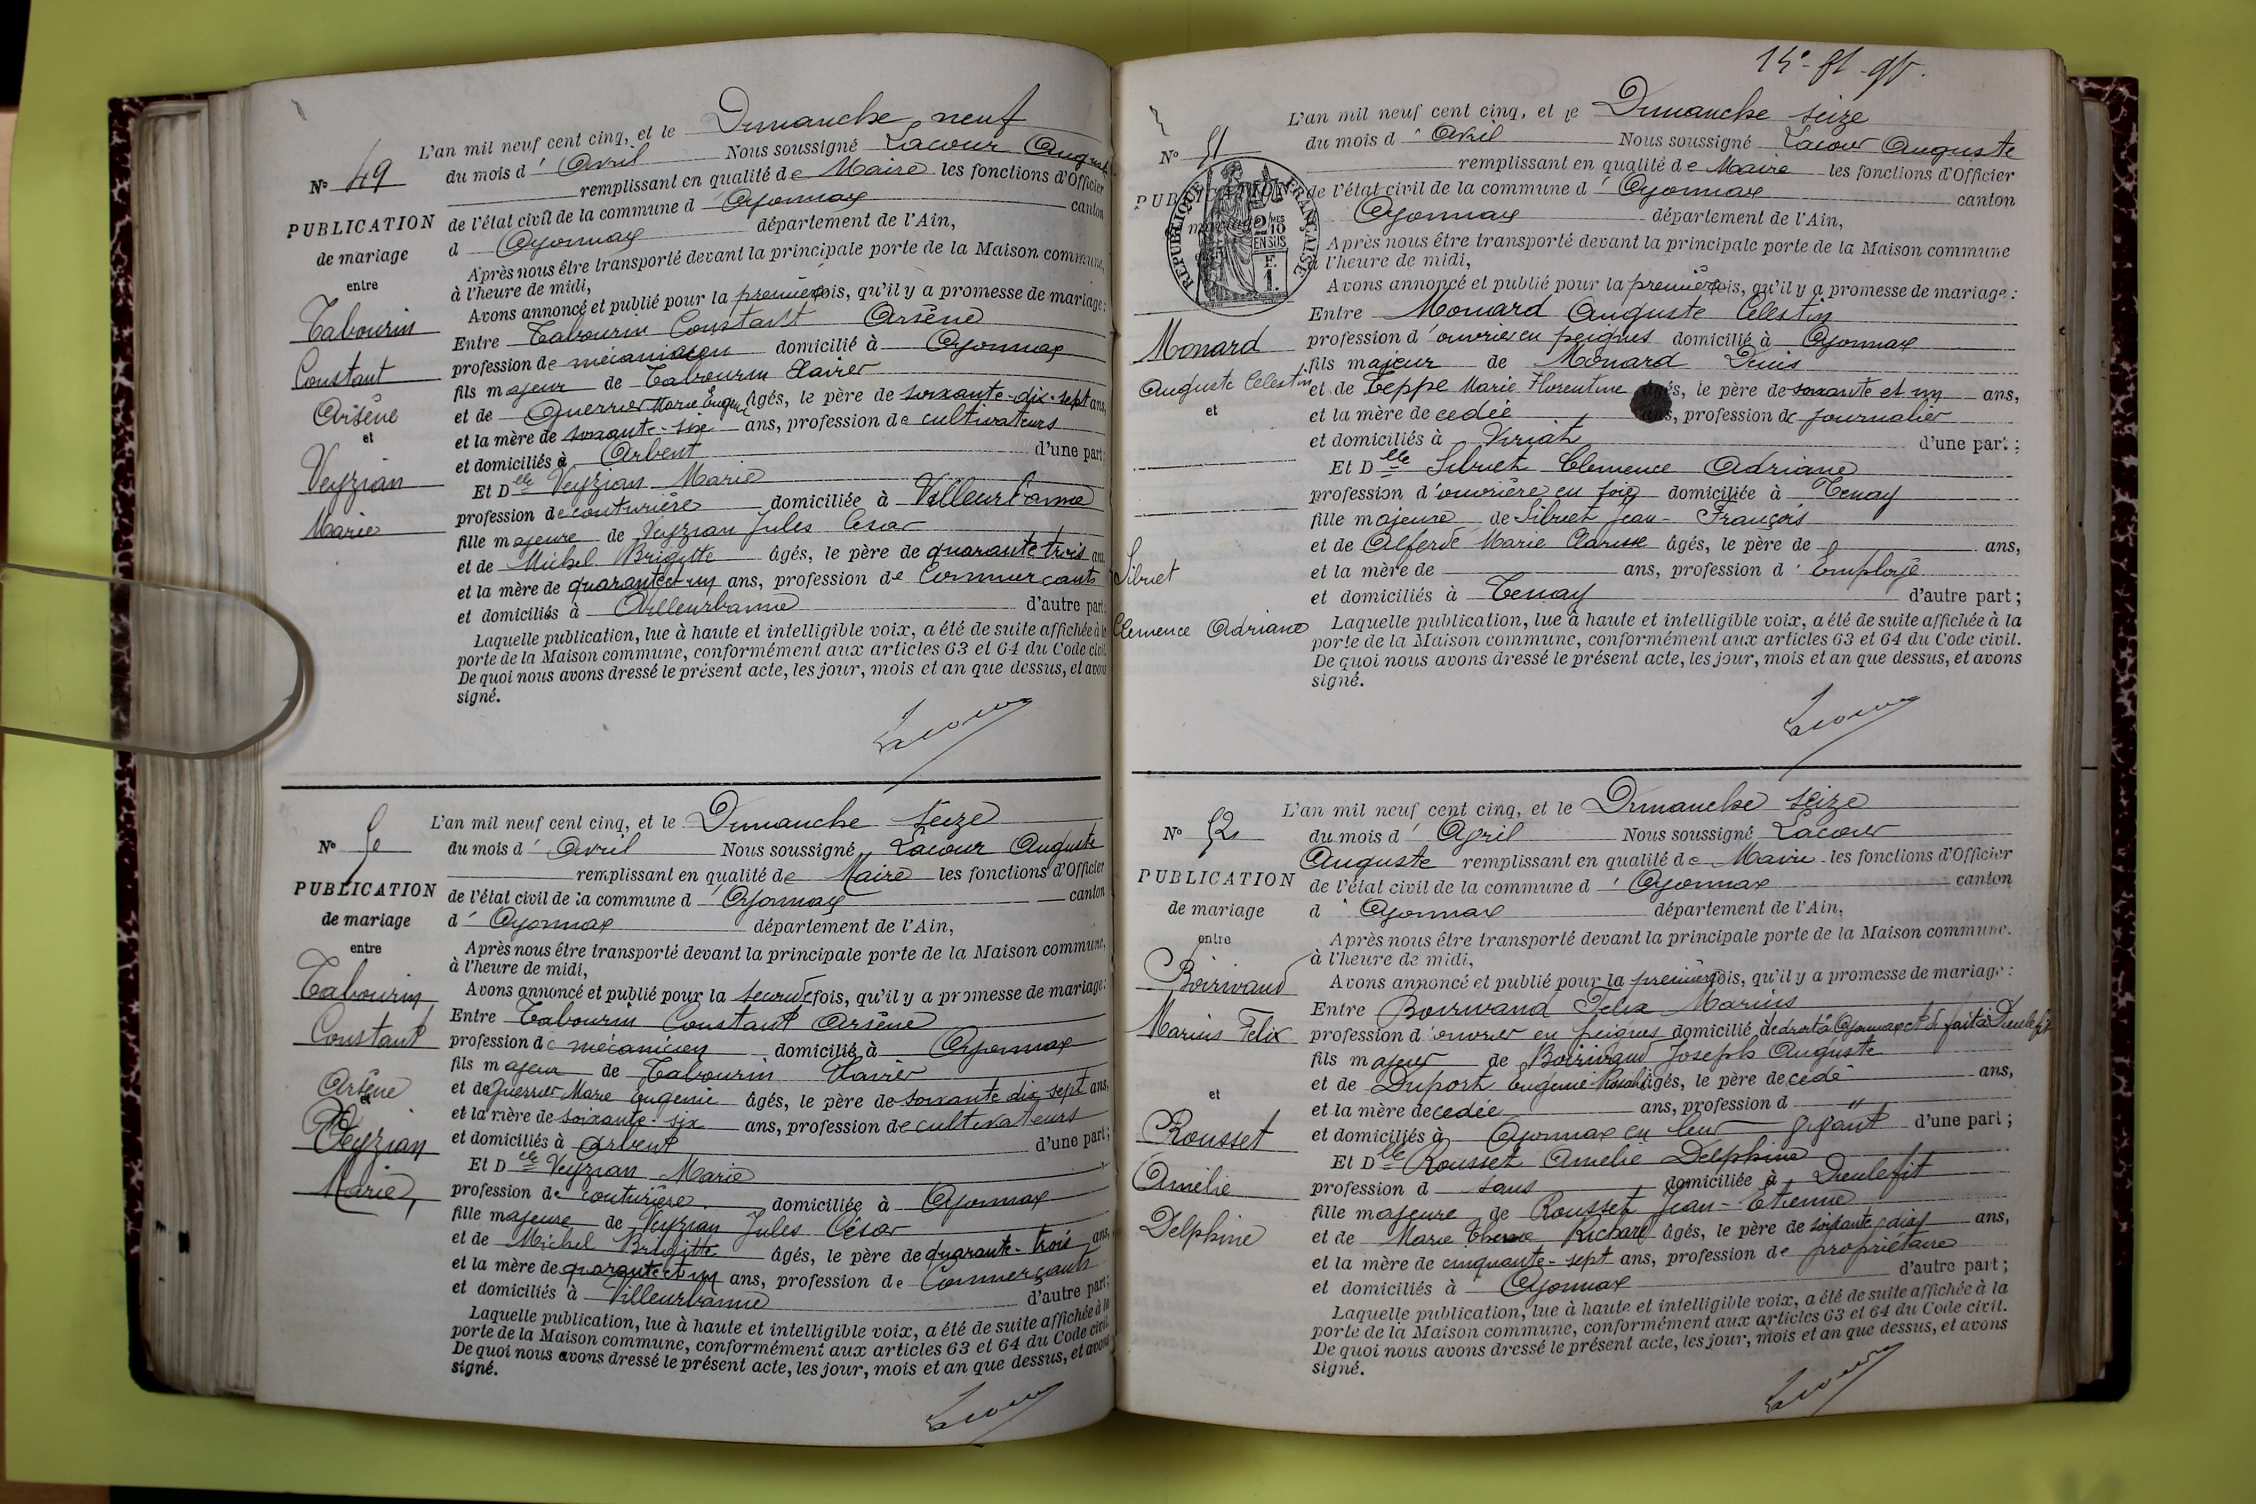 N° 49
PUBLICATION
de mariage
entre
Tabourin
Constant
Arsène
et
Veyzian
Marie
L'an mil neuf cent cinq, et le Dimanche neuf
du mois d' Avril Nous soussigné Lacour Auguste
remplissant en qualité de Maire les fonctions d'Officier
de l'état civil de la commune d' Oyonnax canton
d Oyonnax département de l'Ain,
Après nous être transporté devant la principale porte de la Maison commune,
à l'heure de midi,
Avons annoncé et publié pour la première fois, qu'il y a promesse de mariage:
Entre Tabourin Constant Arsène
profession de mécanicien domicilié à Oyonnax
fils majeur de Tabourin Xavier
et de Guerrier Marie Eugénie âgés, le père de soixante-dix-sept ans,
et la mère de soixante-six ans, profession de cultivateurs
et domiciliés à Arbent d'une part;
Et Delle Veyzian Marie
profession de couturière domiciliée à Villeurbanne
fille majeure de Veyzian Jules Cesar
et de Michel Brigitte âgés, le père de quarante trois ans
et la mère de quarante et un ans, profession de Commerçants
et domiciliés à Villeurbanne d'autre part;
Laquelle publication, lue à haute et intelligible voix, a été de suite affichée à la
porte de la Maison commune, conformément aux articles 63 et 64 du Code civil.
De quoi nous avons dressé le présent acte, les jour, mois et an que dessus, et avons
signé.
Lacour
N° 50
PUBLICATION
de mariage
entre
Tabourin
Constant
Arsène
et
Veyzian
Marie
L'an mil neuf cent cinq, et le Dimanche seize
du mois d' Avril Nous soussigné Lacour Auguste
remplissant en qualité de Maire les fonctions d'Officier
de l'état civil de la commune d' Oyonnax canton
d' Oyonnax département de l'Ain,
Après nous être transporté devant la principale porte de la Maison commune,
à l'heure de midi,
Avons annoncé et publié pour la seconde fois, qu'il y a promesse de mariage:
Entre Tabourin Constant Arsène
profession de mécanicien domicilié à Oyonnax
fils majeur de Tabourin Xavier
et de Guerrier Marie Eugenie âgés, le père de soixante dix sept ans,
et la mère de soixante-six ans, profession de cultivateurs
et domiciliés à Arbent d'une part;
Et Delle Veyzian Marie
profession de couturière domiciliée à Oyonnax
fille majeure de Veyzian Jules César
et de Michel Brigitte âgés, le père de quarante-trois ans,
et la mère de quarante et un ans, profession de Commerçants
et domiciliés à Villeurbanne d'autre part;
Laquelle publication, lue à haute et intelligible voix, a été de suite affichée à la
porte de la Maison commune, conformément aux articles 63 et 64 du Code civil.
De quoi nous avons dressé le présent acte, les jour, mois et an que dessus, et avons
signé.
Lacour
N° 51
PUBLICATION
de mariage
RÉPUBLIQUE FRANÇAISE
2/10
EN SUS
F.
1.
Monard
Auguste Celestin
et
Sibuet
Clemence Adriane
L'an mil neuf cent cinq, et le Dimanche seize
du mois d' Avril Nous soussigné Lacour Auguste
remplissant en qualité de Maire les fonctions d'Officier
de l'état civil de la commune d' Oyonnax canton
Oyonnax département de l'Ain,
Après nous être transporté devant la principale porte de la Maison commune
à l'heure de midi,
Avons annoncé et publié pour la première fois, qu'il y a promesse de mariage:
Entre Monard Auguste Celestin
profession d'ouvrier en peignes domicilié à Oyonnax
fils majeur de Monard Denis
et de Teppe Marie Florentine âgés, le père de soixante et un ans,
et la mère decedée ans, profession de journalier
et domiciliés à Viriat d'une part;
Et Delle Sibuet Clemence Adriane
profession d'ouvrière en soie domiciliée à Tenay
fille majeure de Sibuet Jean-François
et de Marie âgés, le père de ans,
et la mère de ans, profession d' Employé
et domiciliés à Tenay d'autre part;
Laquelle publication, lue à haute et intelligible voix, a été de suite affichée à la
porte de la Maison commune, conformément aux articles 63 et 64 du Code civil.
De quoi nous avons dressé le présent acte, les jour, mois et an que dessus, et avons
signé.
Lacour
N° 52
PUBLICATION
de mariage
entre
Boirivand
Marius Felix
et
Rousset
Amélie
Delphine
L'an mil neuf cent cinq, et le Dimanche seize
du mois d' Avril Nous soussigné Lacour
Auguste remplissant en qualité de Maire les fonctions d'Officier
de l'état civil de la commune d' Oyonnax canton
d' Oyonnax département de l'Ain,
Après nous être transporté devant la principale porte de la Maison commune.
à l'heure de midi,
Avons annoncé et publié pour la première fois, qu'il y a promesse de mariage:
Entre Boirivand Felix Marius
profession d'ouvrier en peignes domicilié de droit à Oyonnax et de fait à Dieulefit
fils majeur de Boirivand Joseph Auguste
et de Duport Eugenie âgés, le père decedé ans,
et la mère decedée ans, profession d "
et domiciliés à Oyonnax en leur vivant d'une part;
Et Delle Rousset Amelie Delphine
profession d sans domiciliée à Dieulefit
fille majeure de Rousset Jean-Etienne
et de Marie Therese Richard âgés, le père de soixante-dix ans,
et la mère de cinquante-sept ans, profession de propriétaire
et domiciliés à Oyonnax d'autre part;
Laquelle publication, lue à haute et intelligible voix, a été de suite affichée à la
porte de la Maison commune, conformément aux articles 63 et 64 du Code civil.
De quoi nous avons dressé le présent acte, les jour, mois et an que dessus, et avons
signé.
Lacour